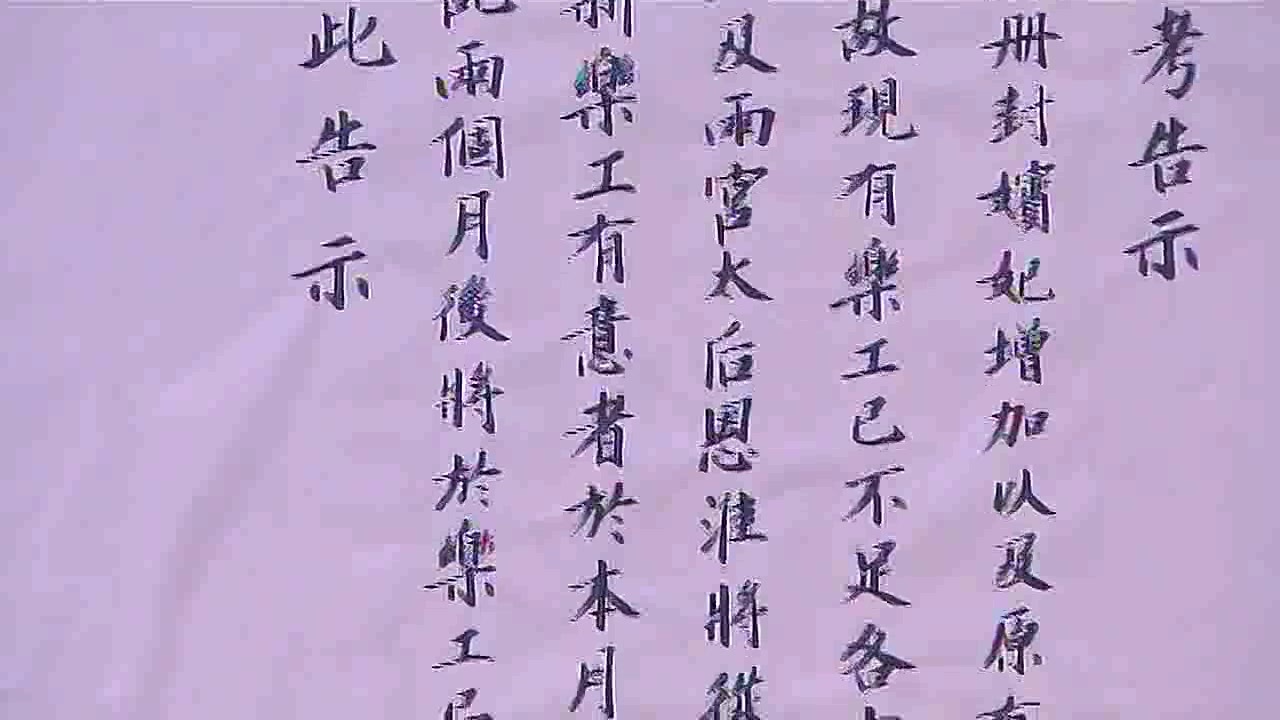 考告示
册封嬪妃增加以及原有
故現有樂工已不足各
及兩宮太后恩准將從
新樂工有意者於本月
此兩個月後將於樂工
此告示